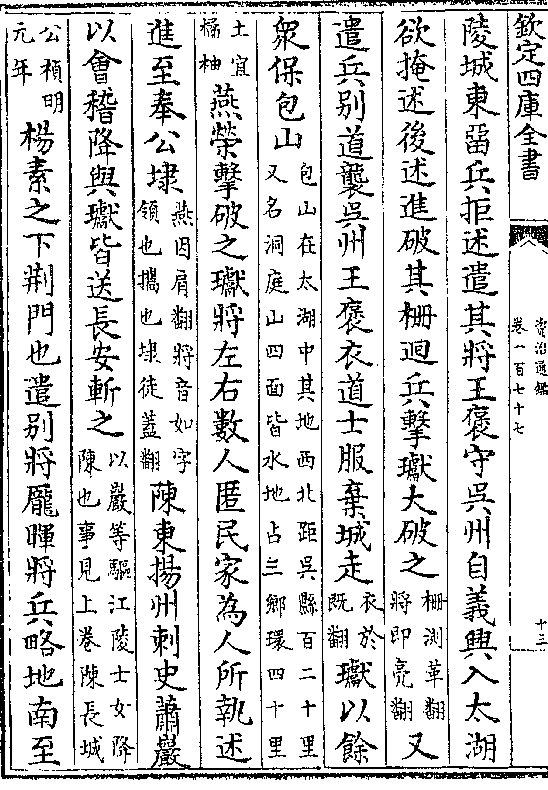 欽定四庫全書
資治通鑑
卷一百七十七
十三
陵城東留兵拒述遣其將王褒守吳州自義興入太湖
欲掩述後述進破其柵廻兵擊瓛大破之柵測革翻將即亮翻又
遣兵别道襲吳州王褒衣道士服棄城走衣於既翻瓛以餘
衆保包山包山在太湖中其地西北距吳縣百二十里又名洞庭山四面皆水地占三鄉環四十里
土宜橘柚燕榮擊破之瓛將左右數人匿民家為人所執述
進至奉公埭燕因肩翻將音如字領也攜也埭徒蓋翻陳東揚州刺史蕭巖
以會稽降與瓛皆送長安斬之以巖等驅江陵士女降陳也事見上卷陳長城
公禎明元年楊素之下荆門也遣别將龎暉將兵略地南至